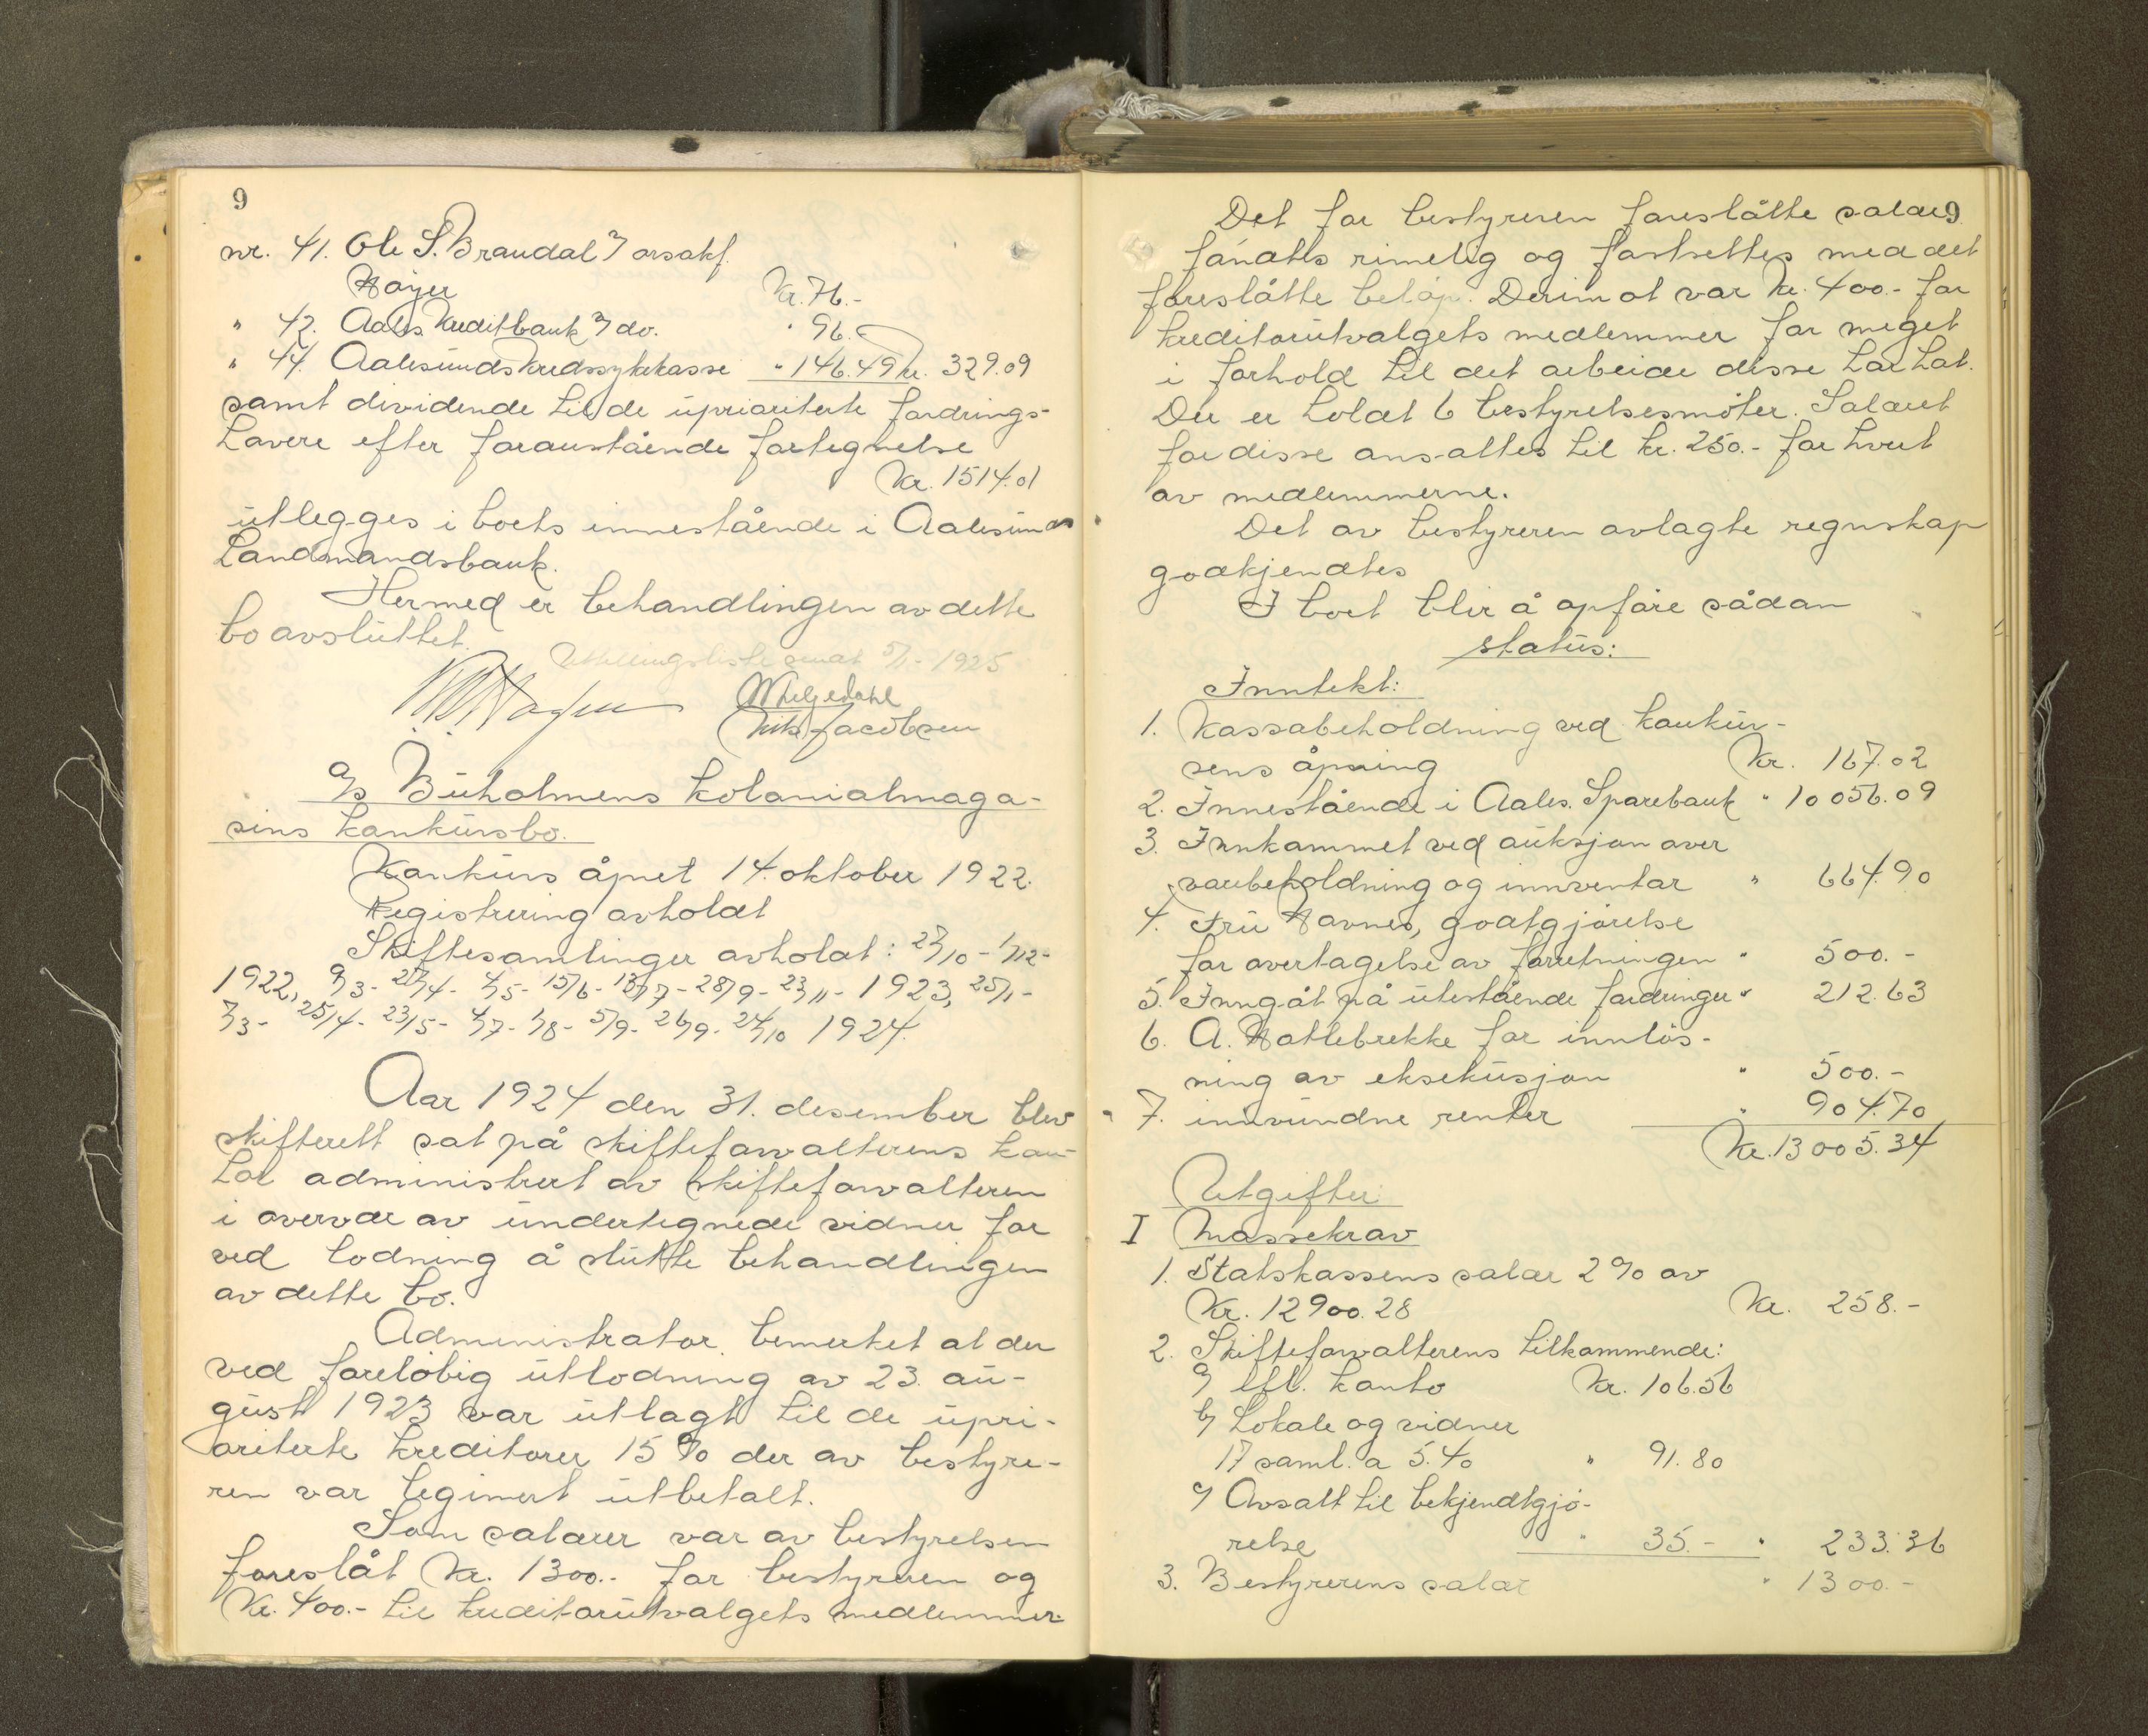 9
nr. 41. Ole S. Brandal v/ orsakf.
Høyer Kr. 76.-
" 42. Aales Kreditbank v/ do. " 96.
" 44. Aalesunds Kredssykekasse " 146.49 kr. 329.09
samt dividende til de uprioriterte fordrings-
havere efter foranstående fortegnelse
Kr. 1514.01
utlegges i boets innestående i Aalesunds
Landmandsbank.
Hermed er behandlingen av dette
bo avsluttet.
Utdelingsliste sendt 5/1- 1925
Jacobsen
a/s Buholmens kolonialmaga-
sins konkursbo.
Konkurs åpnet 14. oktober 1922.
Registrering avholdt
Skiftesamlinger avholdt: 27/10 - 1/12-
1922, 9/3- 27/4- 4/5- 15/6- 13/7- 28/9- 23/11- 1923, 25/1-
7/3- 25/4- 23/5- 4/7- 1/8- 5/9- 26/9- 24/10 1924.
Aar 1924 den 31. desember blev
skifterett sat på skifteforvalterens kon-
tor administrert av skifteforvalteren
i overvær av undertegnede vidner for
ved lodning å slutte behandlingen
av dette bo.
Administrator bemerket at der
ved foreløbig utlodning av 23. au-
gust 1923 var utlagt til de upri-
oriterte kreditorer 15 % der av bestyre-
ren var begjnert utbetalt.
Som salærer var av bestyrelsen
foreslåt Kr. 1300.- for bestyreren og
Kr. 400.- til kreditorutvalgets medlemmer.
9
Det for bestyreren foreslåtte salær
fandtes rimelig og fastsettes med det
foreslåtte beløp. Derimot var kr. 400.- for
kreditorutvalgets medlemmer for meget
i forhold til det arbeide disse har hat.
Der er holdt 6 bestyrelsesmøter. Salæret
for disse ansattes til kr. 250.- for hvert
av medlemmerne.
Det av bestyreren avlagte regnskap
godkjendtes
I boet blir å opføre sådan
status:
Inntekt:
1. Kassabeholdning ved konkur-
sens åpning Kr. 167.02
2. Innestående i Aales. Sparebank " 10056.09
3. Innkommet ved auksjon over
varebeholdning og innventar " 664.90
4. Fru Havnes, godtgjørelse
for overtagelse av forretningen " 500.-
5. Inngåt på utestående fordringer " 212.63
6. A. Hatlebrekke for innløs-
ning av eksekusjon " 500.-
7. innvundne renter " 904.70
Kr. 13005.34
Utgifter
I Massekrav
1. Statskassens salær 2 % av
Kr. 12900.28 Kr. 258.-
2. Skifteforvalterens tilkommende:
a/ efl. konto Kr. 106.56
b/ Lokale og vidner
17 saml. a 5.40 " 91.80
c/ Avsatt til bekjendtgjø-
relse " 35.- " 233.36
3. Bestyrerens salær " 1300.-